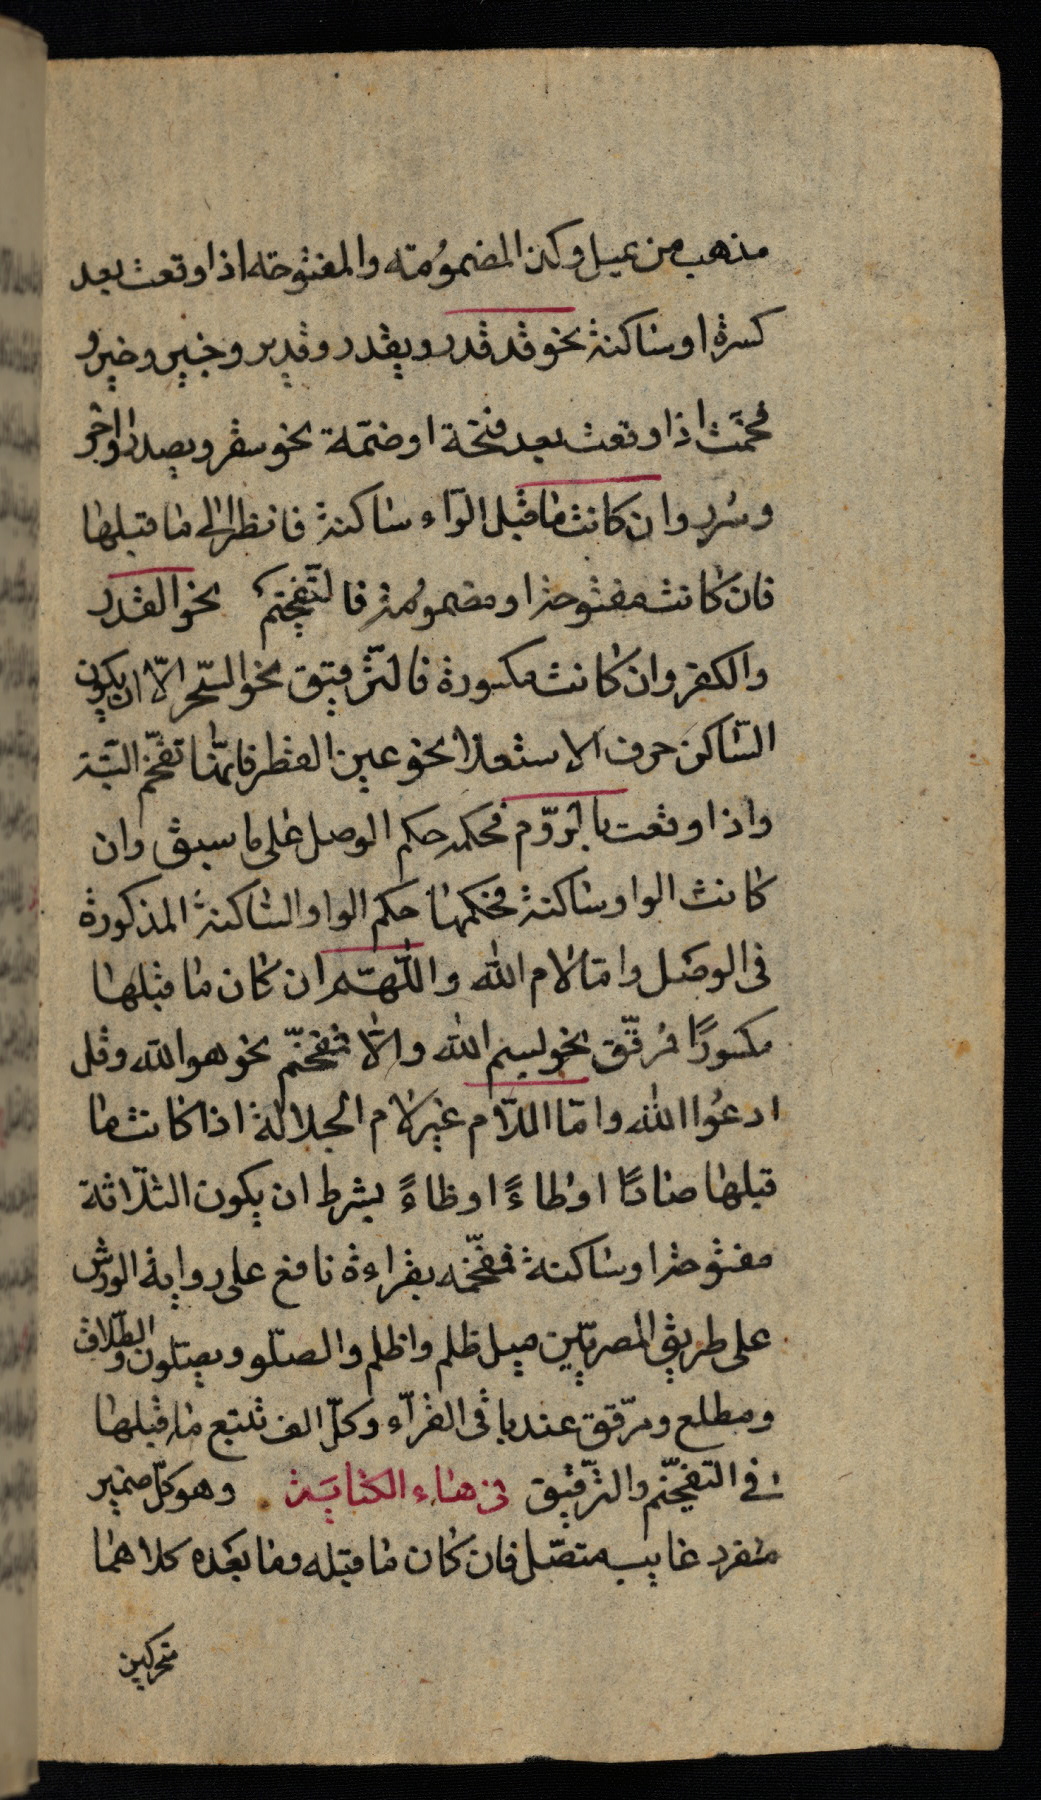 مذهب من يميل وكذا المضمومته والمفتوحته اذا وقعت بعد
كسرة او ساكنة نحو قد قدر ويقدر وقدير وخبير وخير و
فخمت اذا وقعت بعد فتحة او ضمّة نحو سقر ويصدر واخر
وسرر وان كانت ما قبل الرّاء ساكنة فانظر الى ما قبلها
فان كانت مفتوحة او مضمومة فالتّفخيم نحو القدر
والكفر وان كانت مكسورة فالتّرقيق نحو السّحر الّا ان يكون
السّاكن حرف الاستعلا نحو عين القطر فانّها تفخّم البتّة
واذا وقعت بالرّوم فحكمه حكم الوصل على ما سبق وان
كانت الواو ساكنة فحكمها حكم الواو الساكنة المذكورة
فى الوصل وامّا لام الله واللّهمّ ان كان ما قبلها
مكسورًا فرقّق نحو لبسم الله والّا ففخّم نحو هو الله وقل
ادعُوا الله وامّا اللّام غير لام الجلالة اذا كانت ما
قبلها صادًا او طاءً او ظاءً بشرط ان يكون الثلّاثة
مفتوحة او ساكنة ففخّمه بقراءة نافع على رواية الورش
على طريق المصريّين ميل ظلم واظلم والصلو ويصلون والطّلاق
ومطلع ومرّقق عند باقى القرّاء وكلّ الف تتبع ما قبلها
فى التفخيّم والترّقيق فى هاء الكنايَة وهو كلّ ضمير
منفرد غايب متصّل فان كان ما قبله وما بعده كلاهما
متحركين